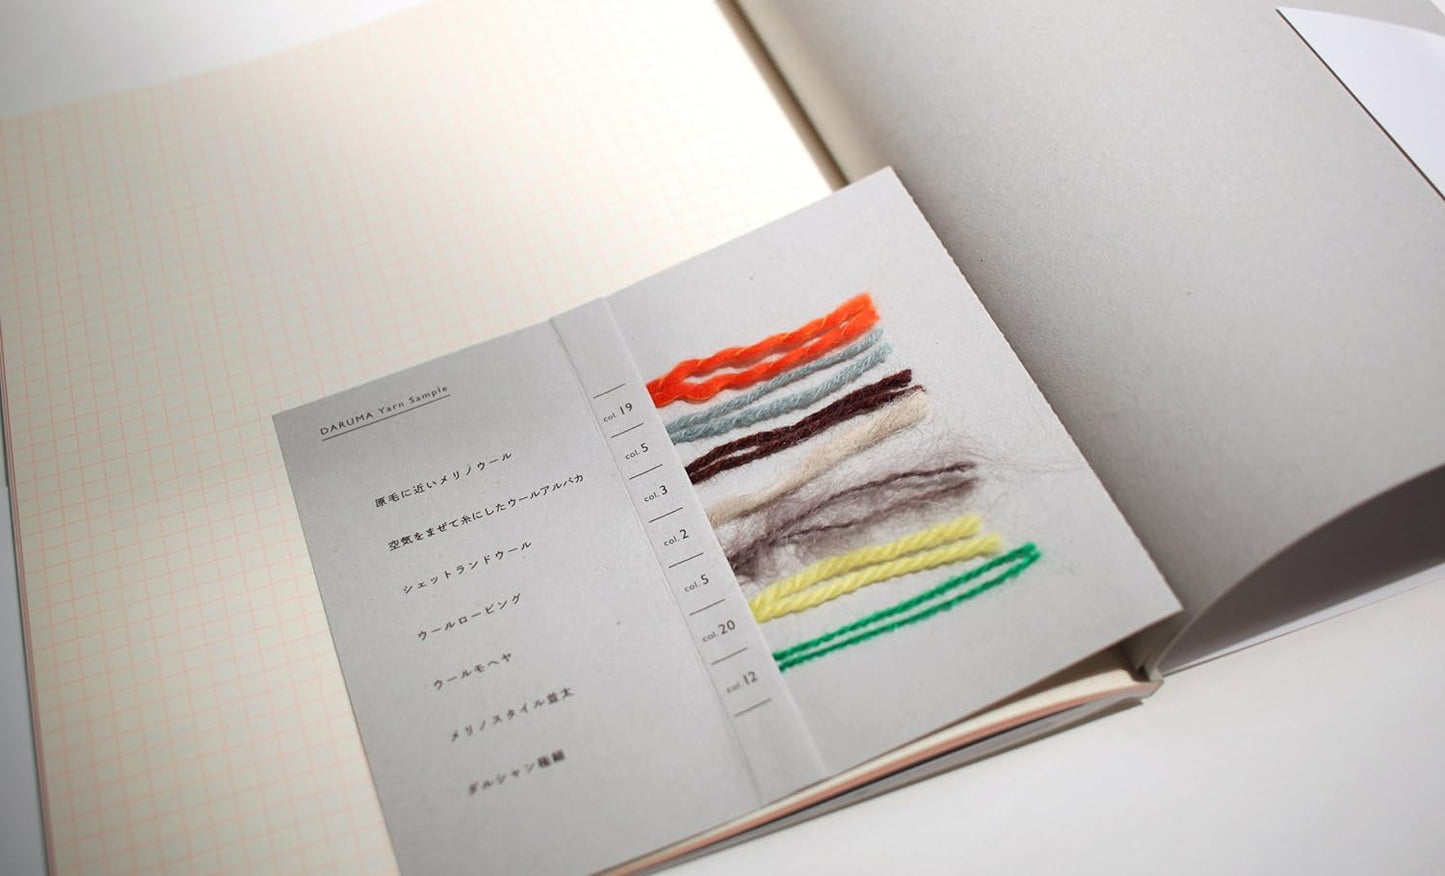 DARUMA Yarn Sample
原毛に近いメリノウール
空気をまぜて糸にしたウールアルパカ
シェットランドウール
ウールロービング
ウールモヘヤ
メリノスタイル並太
ダルシャン極細
col. 19
col. 5
col. 3
col. 2
col. 5
col. 20
col. 12